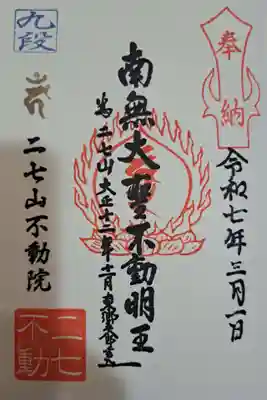 奉納
令和七年三月一日
南無大聖不動明王
為二七山大正十二年十一月東郷
九段
二七山不動院
二七不動